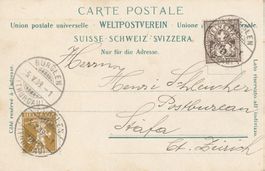 CARTE POSTALE
Union postale universelle - WELTPOSTVEREIN - Unione postale universale
SUISSE · SCHWEIZ · SVIZZERA
Nur für die Adresse.
Côté réservé à l'adresse.
Lato riservato all'indirizzo.
BÜRGLEN
Herrn
Henri Schleucher
Postbureau
Stäfa
Ct. Zürich